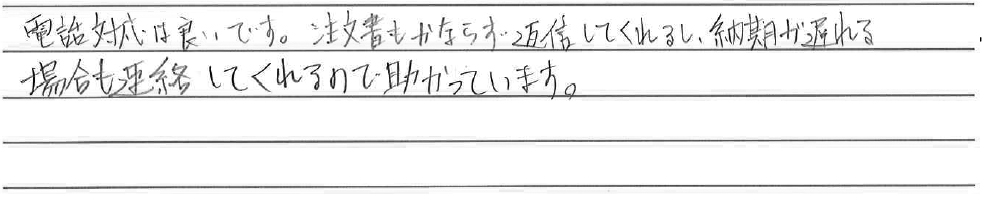 電話対応は良いです。注文書もかならず返信してくれるし、納期が遅れる
場合も連絡してくれるので助かっています。